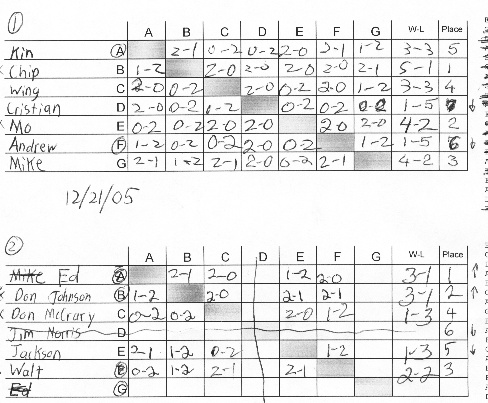 1
A B C D E F G W-L Place
Kin A 2-1 0-2 0-2 2-0 2-1 1-2 3-3 5
Chip B 1-2 2-0 2-0 2-0 2-0 2-1 5-1 1
Wing C 2-0 0-2 2-0 0-2 2-0 1-2 3-3 4
Cristian D 2-0 0-2 0-2 0-2 0-2 0-2 1-5
Mo E 0-2 0-2 2-0 2-0 2-0 2-0 4-2 2
Andrew F 1-2 0-2 0-2 2-0 0-2 1-2 1-5 6
Mike G 2-1 1-2 2-1 2-0 0-2 2-1 4-2 3
12/21/05
2
A B C D E F G W-L Place
Mike Ed A 2-1 2-0 1-2 2-0 3-1 1
Don Johnson B 1-2 2-0 2-1 2-1 3-1 2
Don McCrary C 0-2 0-2 2-0 1-2 1-3 4
Jim Norris D 6
Jackson E 2-1 1-2 0-2 1-2 1-3 5
Walt F 0-2 1-2 2-1 2-1 2-2 3
Ed G